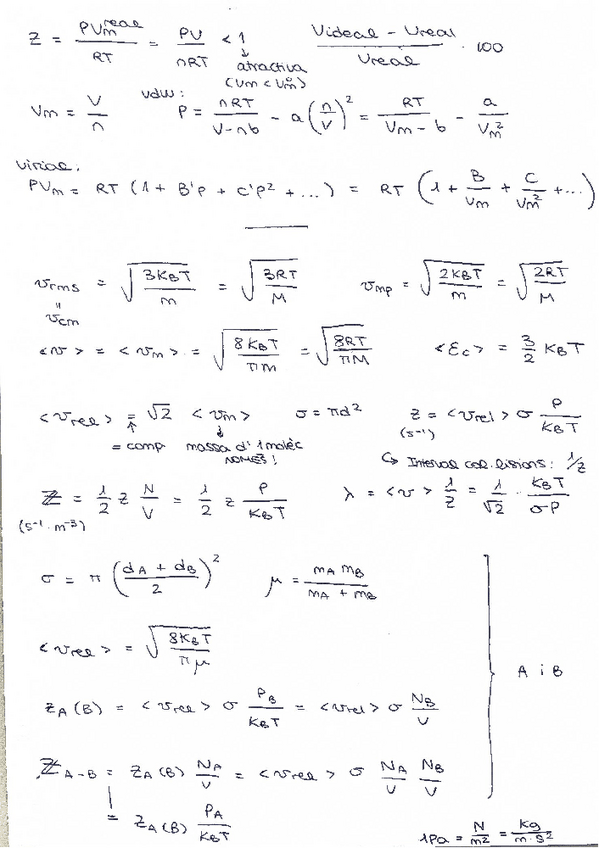 Z = PVm^real / RT = PV / nRT < 1    (Videal - Vreal / Vreal) · 100
↓ atractiva
(Vm < Vm°)
Vm = V / n    vdw: P = nRT / (V - nb) - a (n / V)² = RT / (Vm - b) - a / Vm²
virial:
PVm = RT (1 + B'P + C'P² + ...) = RT (1 + B / Vm + C / Vm² + ...)
vrms = √(3KBT / m) = √(3RT / M)    vmp = √(2KBT / m) = √(2RT / M)
" vcm
<v> = <vm> = √(8KBT / πm) = √(8RT / πM)    <Ec> = 3/2 KBT
<vrel> = √2 <vm>    σ = πd²    z = <vrel> σ P / KBT
↑ = comp    ↓ massa d'1 molèc NOMÉS!    (s⁻¹)
↳ Interval col·lisions: 1/z
Z = 1/2 z N / V = 1/2 z P / KBT    λ = <v> 1/z = 1/√2 · KBT / σP
(s⁻¹ · m⁻³)
σ = π ((dA + dB) / 2)²    μ = mA mB / (mA + mB)
<vrel> = √(8KBT / πμ)
A i B
zA(B) = <vrel> σ PB / KBT = <vrel> σ NB / V
ZA-B = zA(B) NA / V = <vrel> σ NA / V NB / V
= zA(B) PA / KBT
1Pa = N / m² = Kg / m·s²